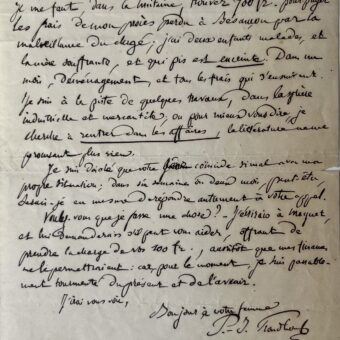 je me faut, dans la huitaine, trouver 700 fr. pour payer
les frais de mon procès perdu à Besançon par la
malveillance du clergé; j'ai deux enfants malades, et
la mère souffrante, et qui pis est enceinte. Dans un
mois, déménagement, et tous les frais qui s'ensuivent.
Je suis à la piste de quelques travaux, dans la sphère
industrielle et mercantile; ou pour mieux vous dire, je
cherche à rentrer dans les affaires, la littérature ne me
produisant plus rien.
Je suis désolé que votre coïncide si mal avec ma
propre situation; dans six semaines ou deux mois, peut-être
serais-je en mesure de répondre autrement à votre appel.
Voulez-vous que je fasse une chose? J'écrirais à Maguet,
et lui demanderais s'il peut vous aider, offrant de
prendre la charge de vos 100 fr., aussitôt que mes finances
me le permettraient: car, pour le moment, je suis passable-
ment tourmenté du présent et de l'avenir.
J'irai vous voir,
Bonjour à votre femme
P.-J. Proudhon